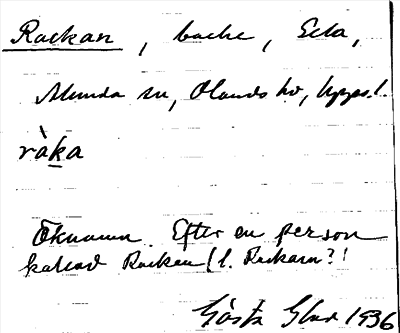 Rackan, backe, Ekla,
Almunda sn, Olands hd, Upps. l.
ràka
Öknamn. Efter en person
kallad Racken (l. Rackarn?!
Gösta Glad 1936